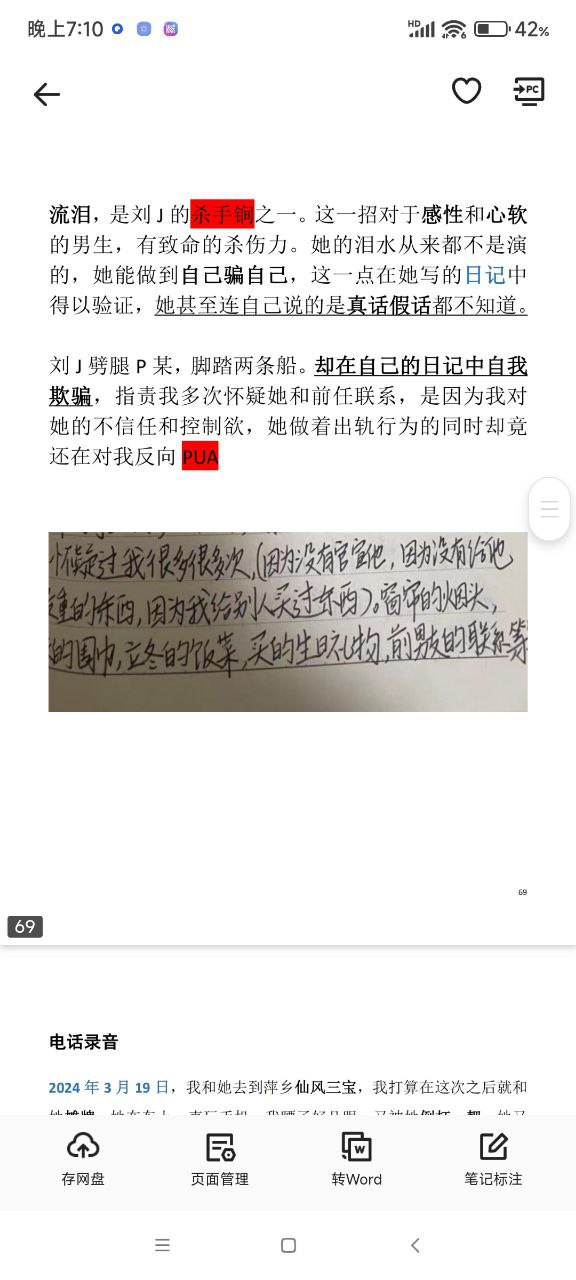 晚上7:10
HD
6
42%
PC
流泪，是刘 J 的杀手锏之一。这一招对于感性和心软
的男生，有致命的杀伤力。她的泪水从来都不是演
的，她能做到自己骗自己，这一点在她写的日记中
得以验证，她甚至连自己说的是真话假话都不知道。
刘 J 劈腿 P 某，脚踏两条船。却在自己的日记中自我
欺骗，指责我多次怀疑她和前任联系，是因为我对
她的不信任和控制欲，她做着出轨行为的同时却竟
还在对我反向 PUA
怀疑过我很多很多次，(因为没有官宣他，因为没有给他
重的东西，因为我给别人买过东西)。窗帘的烟头，
的围巾，立冬的饭菜，买的生日礼物，前男友的联系等
69
69
电话录音
2024 年 3 月 19 日，我和她去到萍乡仙风三宝，我打算在这次之后就和
存网盘
页面管理
W
转Word
笔记标注